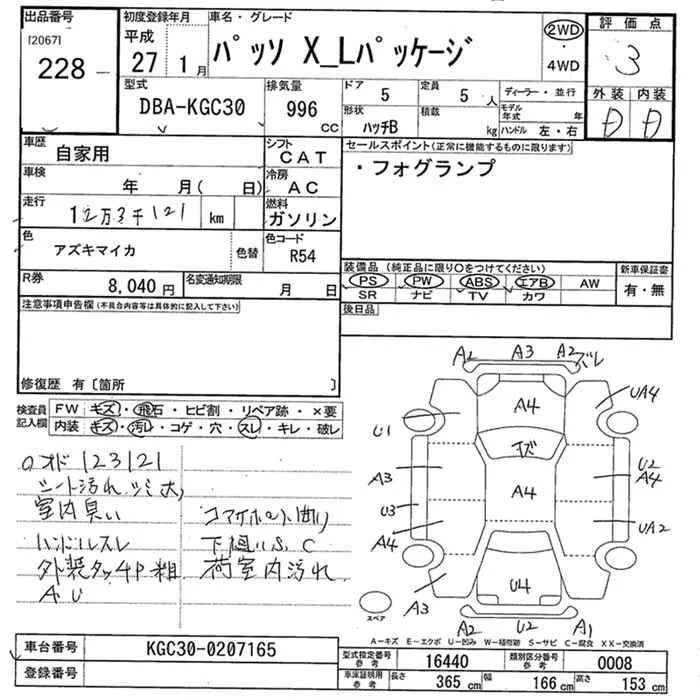 出品番号
[2067]
228
初度登録年月
平成
27 1月
車名・グレード
パッソ X_Lパッケージ
2WD
・
4WD
評価点
3
外装 内装
D D
型式
DBA-KGC30
排気量
996
cc
ドア 5
定員 5人
形状 ハッチB
積載 kg
ディーラー・並行
モデル年式 年
ハンドル 左・右
車歴 自家用
シフト CAT
車検 年 月( 日)
冷房 AC
走行 12万3千121 km
燃料 ガソリン
色 アズキマイカ 色替
色コード R54
R券 8,040円
名変通知期限 月 日
セールスポイント(正常に機能するものに限ります)
・フォグランプ
装備品 (純正品に限り○をつけてください)
PS PW ABS エアB AW
SR ナビ TV カワ
新車保証書
有・無
後日品
注意事項申告欄(不具合内容等は具体的に記入して下さい)
修復歴 有〔箇所 〕
検査員記入欄
FW キズ・飛石・ヒビ割・リペア跡・×要
内装 キズ・汚レ・コゲ・穴・スレ・キレ・破レ
オド 123121
シート汚れ シミ大
室内臭い
ハンドルスレ
下廻りS、C
外装タッチP粗
荷室内汚れ
A U
A2 A3 A2 ズレ
A4 UA4
U1 キズ
A3 U2 A4
U3 A4
A4 UA2
U4
A3
スペア
A2 U2 A1
A-キズ E-エクボ U-凹み W-補修跡 S-サビ C-腐食 XX-交換済
車台番号 KGC30-0207165
登録番号
型式指定番号 参考 16440
類別区分番号 参考 0008
車庫証明用 参考 長さ 365 cm 幅 166 cm 高さ 153 cm